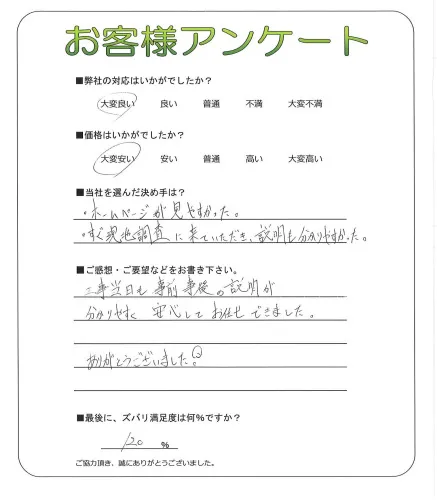 お客様アンケート
■弊社の対応はいかがでしたか？
大変良い 良い 普通 不満 大変不満
■価格はいかがでしたか？
大変安い 安い 普通 高い 大変高い
■当社を選んだ決め手は？
・ホームページが見やすかった。
・すぐ現地調査に来ていただき、説明も分かりやすかった。
■ご感想・ご要望などをお書き下さい。
工事当日も事前事後の説明が
分かりやすく安心してお任せできました。
ありがとうございました。
■最後に、ズバリ満足度は何％ですか？
120 %
ご協力頂き、誠にありがとうございました。